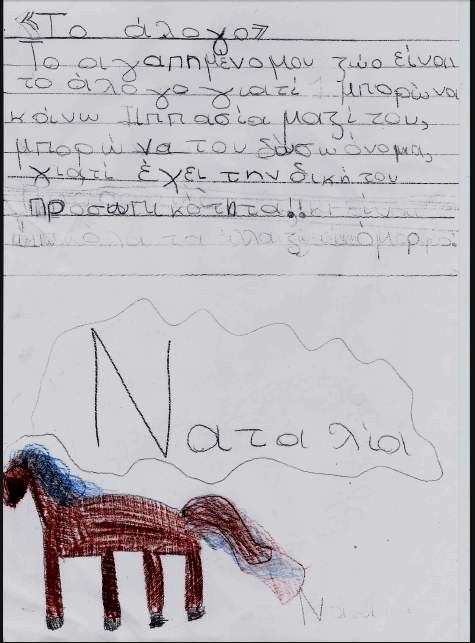 «Το άλογο»
Το αγαπημένο μου ζώο είναι
το άλογο γιατί μπορώ να
κάνω ιππασία μαζί του,
μπορώ να του δώσω όνομα,
γιατί έχει την δική του
προσωπικότητα!! κι είναι
Ναταλία